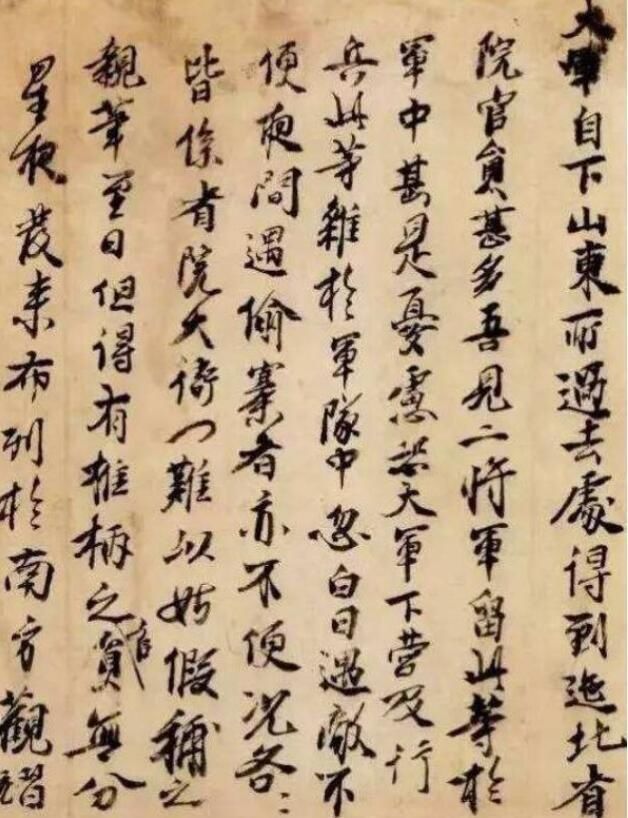 大軍自下山東所過去處得到迤北省
院官員甚多吾見二將軍留此等於
軍中甚是憂慮恐大軍下營及行
兵此等雜於軍隊中忽白日遇敵不
便夜間遇偷寨者亦不便況各各
皆係省院大衙門難以姑假補之
親筆至日但得有椎柄之官員無分
星夜發來布列於南方觀